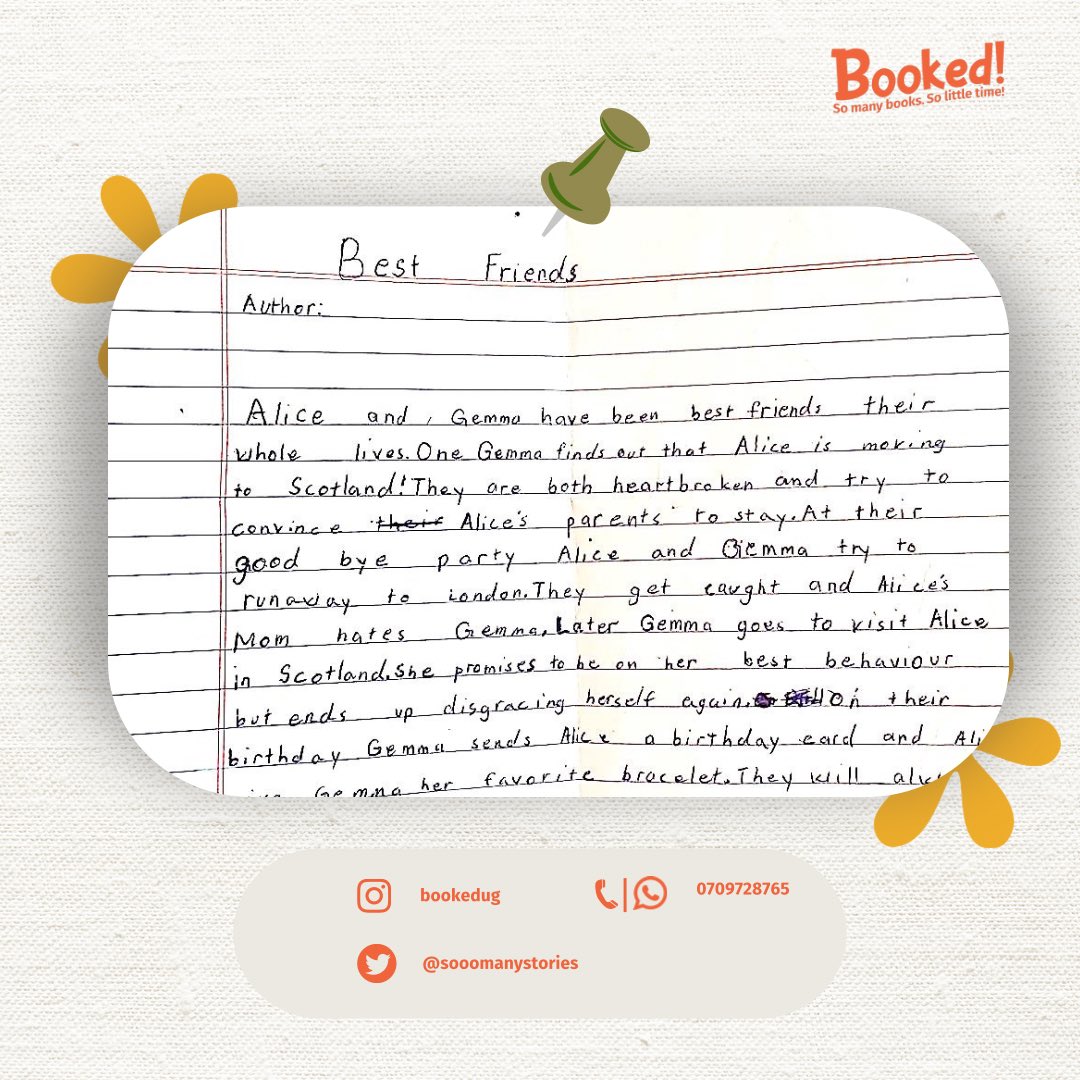 Booked!
So many books. So little time!
Best Friends
Author:
Alice and, Gemma have been best friends their
whole lives. One Gemma finds out that Alice is moving
to Scotland! They are both heartbroken and try to
convince their Alice's parents to stay. At their
good bye party Alice and Gemma try to
runaway to London. They get caught and Alice's
Mom hates Gemma. Later Gemma goes to visit Alice
in Scotland. She promises to be on her best behaviour
but ends up disgracing herself again. On their
birthday Gemma sends Alice a birthday card and Ali
Gemma her favorite bracelet. They will
bookedug
0709728765
@sooomanystories